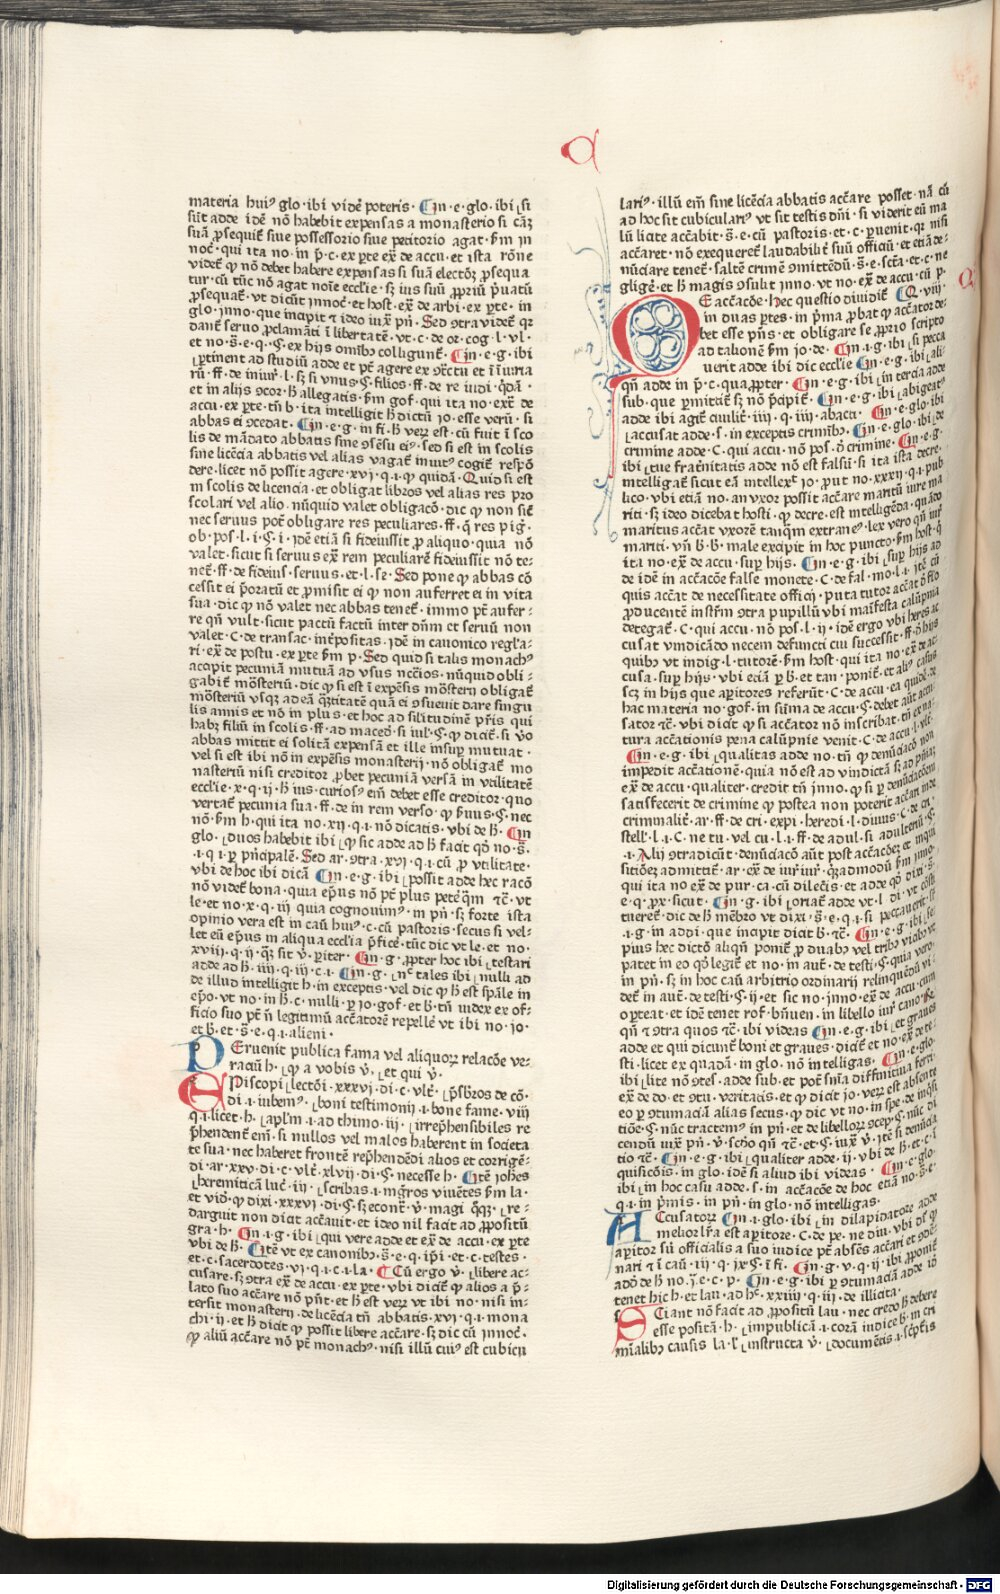 a
materia huiꝰ glo · ibi vidẽ poteris · In · e · glo · ibi si
sũt adde idẽ nõ habebit expensas a monasterio si cãꝫ
suã ꝓsequit̃ siue possessorio siue petitorio agat · ẜm in
noc̃ · qui ita no · in p̃ · c · ex ꝑte ex̃ de accu · et ista rõne
videt̃ ꝙ nõ debet habere expensas si suã electoꝝ ꝓsequa
tur · cũ tũc nõ agat noĩe ecclĩe · sꝫ ius suũ ꝓpriũ p̃uatũ
ꝓsequat̃ · vt dicũt innoc̃ · et host · ex̃ de arbi · ex ꝑte · in
glo · inno · que incipit ⁊ ideo iuxͣ pñ · Sed ꝯtra videt̃ qꝛ
danẽ seruo ꝓclamãti ĩ libertatẽ · vt · c · de or · cog · l · vl ·
et no · s̃ · e · q · §. ex hijs omĩbꝫ colligunt̃ · In · e · g · ibi
ꝑtinent ad studiũ adde et põt agere ex ꝯctu et ĩ iniuria
rũ · ff · de iniur̃ · l · sꝫ si vnus · §. filios · ff · de re iudi · q̃dã ·
et in alijs ꝯcor · ẜ allegatis · ẜm gof · qui ita no · ext̃ de
accu · ex ꝑte · tñ b · ita intelligit ẜ dictũ jo · esse verũ · si
abbas ei ꝯcedat · In · e · g · in fi · ẜ verꝝ est · cũ fuit ĩ sco
lis de mãdato abbatis sine ꝯsẽsu eiꝰ · sed si est in scolis
sine licẽcia abbatis vel alias vagat̃ inuitꝰ cogit̃ respõ
dere · licet nõ possit agere · xvj · q · i · ꝙ quidã · Quid si est
in scolis de licencia · et obligat libros vel alias res pro
scolari vel alio · nũquid valet obligacõ · dic ꝙ non sic̃
nec seruus pot̃ obligare res peculiares · ff · q̃ res pig̃ ·
ob · pos · l · i · §. i · jdẽ etiã si fideiussit ꝓ aliquo · quia nõ
valet · sicut si seruus ex̃ rem peculiarẽ fideiussit nõ te-
net̃ · ff · de fideius̃ · seruus · et · l · se · Sed pone ꝙ abbas cõ
cessit ei p̃oratũ et ꝓmisit ei ꝙ non auferret ei in vita
sua · dic ꝙ nõ valet nec abbas tenet̃ · immo põt aufer-
re qñ vult · sicut pactũ factũ inter dñm et seruũ non
valet · C · de transac · intp̃ositas · jdẽ in canonico regĩa-
ri · ex̃ de postu · ex ꝑte ẜm p · Sed quid si talis monachꝰ
accipit pecuniã mutuã ad vsus nccĩos · nũquid obli-
gabit̃ mõsteriũ · dic ꝙ si est ĩ expẽsis mõstern obligat̃
mõsteriũ vsqꝫ ad eã q̃ꝫtitatẽ quã ei ꝯsueuit dare singu
lis annis et nõ in plus · et hoc ad silitudinẽ pr̃is qui
habꝫ filiũ in scolis · ff · ad maced̃ · si iur̃ · §. ꝙ dicit̃ · si ṽo
abbas mittit ei solitã expensã et ille insuꝑ mutuat ·
vel si est ibi nõ in expẽsis monasterij · nõ obligat̃ mo
nasteriũ nisi creditor ꝓbet pecuniã versã in vtilitatẽ
ecclĩe · x · q · ij · ẜ ius · curiosꝰ em̃ debet esse creditor · quo
vertat̃ pecunia sua · ff · de in rem verso · ꝙ ẜuus · §. nec
nõ · ẜm h · qui ita no · xij · q · i · nõ dicatis · vbi de ẜ · In
glo · duos habebit ibi ꝙ sic adde ad ẜ facit qõ no · s̃ ·
· i · q · i · ꝑ pñcipalẽ · Sed ar · ꝯtra · xvj · q · i · cũ ꝓ vtilitate ·
vbi de hoc ibi dicã In · e · g · ibi possit adde hec racõ
nõ videt̃ bona · quia ep̃us nõ põt plus petẽ q̃m ⁊c̃ · vt
le · et no · x · q · iij quia cognouimꝰ · in pñ · sꝫ forte ista
opinio vera est in caũ huiꝰ · c · cũ pastoris · secus si vel-
let eũ ep̃us in aliqua ecclĩa p̃fice · tũc dic vt le · et no ·
xviij · q · ij · q̃ꝫ sit ṽ · pr̃iter · In · g · ꝓpter hoc ibi testari
adde ad ẜ · iiij · q · iij · c · i · In · g · nͨ tales ibi nulli ad
de illud intelligit h · in exceptis · vel dic ꝙ ẜ est sp̃ale in
ep̃o · vt no · in ẜ · c · nulli · ꝑ jo · gof · et ẜ · tñ iudex ex of-
ficio suo põt ñ legitimũ accãtorẽ repellẽ vt ibi no · jo ·
et ẜ · et · s̃ · e · q · i · alieni ·
Peruenit publica fama vel aliquoꝝ relacõe ve-
raciũ h · ꝙ a vobis ṽ · et qui ṽ ·
Episcopi lectõi · xxxvi · di · c · vlt̃ · p̃sbꝫos de cõ-
di · i · iubemꝰ · boni testimonii · i · bone fame · viij
q · i · licet · h · apl̃m · i · ad thimo · iij · irrep̃hensibiles re
p̃hendent̃ em̃ · si nullos vel malos haberent in societa
te sua · nec haberet frontẽ rep̃hendẽdi alios et corrigẽ-
di · ar · xxv · di · c · vlt̃ · xlvij · di · §. necesse h · Itẽ johẽs
heremiticã luc̃ · iij · scribas · i · mgr̃os viuẽtes ẜm la ·
et vid̃ · ꝙ dixi · xxxvi · di · §. sꝫ econt̃ · ṽ · magi q̃ꝫ · re-
darguit non dicat accãuit · et ideo nil facit ad ꝓpositũ
gra · h · In · i · g · ibi qui vere adde et ex̃ de accu · ex ꝑte
vbi de ẜ · Itẽ vt ex canonibꝫ · s̃ · e · q · ip̃i · et · c · testes ·
et · c · sacerdotes · vi · q · i · c · i · la · Cũ ergo ṽ · libere ac-
cusare · sꝫ ꝯtra ex̃ de accu · ex ꝑte · vbi dicit̃ ꝙ alios a p̃-
lato suo accãre nõ pñt · et ẜ est verꝝ vt ibi no · nisi in-
tersit monastern · de licẽcia tñ abbatis · xvi · q · i · mona
chi · ij · et ẜ dicit̃ ꝙ possit libere accãre · sꝫ dic cũ jnnoc̃ ·
ꝙ aliũ accãre nõ põt monachꝰ · nisi illũ cuiꝰ est cubicu
lariꝰ · illũ em̃ sine licẽcia abbatis accãre posset · nã cũ
ad hoc sit cubiculariꝰ vt sit testis dñi · si viderit eũ ma
lũ licite accãbit · s̃ · e · cũ pastoris · et · c · ꝑuenit · qꝛ nisi
accãret · nõ exequeret̃ laudabilit̃ suũ officiũ · et etiã de-
nũciare tenet̃ · saltẽ crimẽ ꝯmittẽdũ · s̃ · e · scr̃a · et · c · ne
gligẽ · et ẜ magis ꝯsulit jnno · vt no · ex̃ de accu · cũ p ·
De accãcõe · Hec questio diuidit̃ Q · viij ·
in duas ꝑtes · in p̃ma ꝓbat ꝙ accãtor de-
bet esse pñs · et obligare se ꝓprio scripto
ad talionẽ ẜm jo · de · In · i · g · ibi si pecca
uerit adde ibi dic ecclĩe In · e · g · ibi ali-
qñ adde in p̃ · c · qua ꝓpter · In · e · g · ibi in tercia adde
sub · que ꝑmitãt̃ sꝫ nõ p̃cipit̃ · In · e · g · ibi abigeatꝰ
adde ibi agit̃ ciuilit̃ · iiij · q · iiij · abacu · In · e · glo · ibi
accusat adde · s · in exceptis crimĩbꝫ · In · e · glo · ibi de
crimine adde · C · qui accu · nõ pos · d̃ crimine · In · e · g ·
ibi tue frat̃nitatis adde nõ est falsũ · si ita ista decre ·
intelligat̃ sicut eã intellexꝰ jo · ꝓut no · xxxij · q · i · pub
lico · vbi etiã no · an vxor possit accãre maritũ iure ma
riti · sꝫ ideo dicebat hosti · ꝙ decre · est intelligẽda · quãdo
maritus accãt vxorẽ tanq̃m extraneꝰ · lex vero qñ iurͤ
mariti · vñ b · ẜ · male excipit in hoc puncto · ẜm host · q̃
ita no · ex̃ de accu · suꝑ hijs · In · e · g · ibi suꝑ hijs ad
de idẽ in accãcõe false monete · C · de fal · mo · l · i · jtẽ cũ
quis accãt de necessitate officij · puta tutor accãt d̃ flo
ꝓducentẽ instrm̃ ꝯtra pupillũ vbi maĩfesta calũpnia
detegat̃ · C · qui accu · nõ pos · l · ij · idẽ ergo vbi heres ac
cusat vindicãdo necem defuncti cui successit · ff · d̃ hijs
quibꝫ vt indig · l · tutorẽ · ẜm host · qui ita no · ex̃ de ac-
cusa · suꝑ hijs · vbi eciã ꝑ b · et tan · ponit̃ · et aliꝰ casus
scꝫ in hijs que aꝑitores referũt · C · de accu · ea quidẽ · de
hac materia no · gof · in sũma de accu · §. debet aũt accu
sator ⁊c̃ · vbi dicit ꝙ si accãtor nõ inscribat · tñ ex na-
tura accationis pena calũpnie venit · C · de accu · l · vlt̃ ·
In · e · g · ibi qualitas adde no · tñ ꝙ denũciacõ non
impedit accãtionẽ · quia nõ est ad vindictã sꝫ ad pñiaꝫ
ex̃ de accu · qualiter · credit tñ jnno · ꝙ si ꝑ denũciacõem
satisfecerit de crimine ꝙ postea non poterit accãri inde
criminalit̃ · ar · ff · de cri · expi · heredi · l · diuus · C · de cri ·
stell · l · i · C · ne tu · vel cu · l · i · ff · de adul · si adulteriũ · §.
· i · Alij ꝯtradicũt · denũciacõ aũt post accãcõeꝫ et inqui
sitiõeꝫ admittit̃ · ar · ex̃ de iur̃ iur̃ · q̃ꝫadmodũ ẜm jnno ·
qui ita no ex̃ de pur · ca · cũ dilect̃is · et adde qõ dixi · s̃ ·
e · q · ꝓx · sicut · In · g · ibi oriat̃ adde vt · l · di · vt cõsti
tuerent̃ · dic de ẜ mẽbro vt dixi · s̃ · e · q · i · si peccauerit · sꝫ
· i · g · in addi · que incipit dicit b · ⁊c̃ · In · e · g · ibi se
pius hec dictõ aliqñ ponit̃ ꝓ duabꝰ vel tribꝰ viabꝰ vt
patet in eo qõ legit̃ et no · in aut̃ · de testi · §. quia vero ·
in pñ · sꝫ in hoc caũ arbitrio ordinarij relinquẽdũ vi-
det̃ in aut̃ · de testi · §. ij · et sic no · jnno · ex̃ de accu · cum
oꝑteat · et idẽ tenet rof · b̃nuen · in libello iur̃ cano · sꝫ
qñ ⁊ ꝯtra quos ⁊c̃ · ibi videas In · e · g · ibi et graues
adde et qui dicunt̃ boni et graues · dicit̃ et no · ex̃ de te-
sti · licet ex quadã · in glo · nõ intelligas · In · e · glo ·
ibi lite nõ ꝯtes̃ · adde sub · et pot̃ snĩa diffinitiua ferri
ex̃ de do · et ꝯtu · veritatis · et ꝙ dicit jo · verꝝ est absente
eo ꝑ ꝯtumaciã alias secus · ꝙ dic vt no · in spe · de inq̃si
tiõe · §. nũc tractemꝰ in pñ · et de libelloꝝ ꝯcep · §. nũc di
cendũ iuxͣ pñ · ṽ · scr̃o qñ ⁊c̃ · et §. iuxͣ ṽ · jtẽ si denũcia
tio ⁊c̃ · In · e · g · ibi qualiter adde · ij · vbi de ẜ · et · c · i
quisicõis · in glo · idẽ si aliud ibi videas · In · e · glo ·
ibi in hoc casu adde · s · in accãcõe de hoc etiã no · s̃ · e ·
q · i · in p̃mis · in pñ · in glo nõ intelligas ·
Accusatoꝝ In · i · glo · ibi in dilapidatore adde
melior lr̃a est aꝑitore · C · de pe · ne diu · vbi dẽ ꝙ
aꝑitor sui officialis a suo iudice põt absẽs accãri et ꝯdẽ-
nari ⁊ ĩ caũ · iij · q · jx · §. i · fi · In · g · v · q · ij · ibi ꝓponit̃
adõ de ẜ no · s̃ · e · c · p · In · e · g · ibi ꝑ ꝯtumaciã adde id̃
tenet hic h · et lau · ad hͨ · xxiiij · q · iij · de illicita ·
Sciant nõ facit ad ꝓpositũ lau · nec credo ẜ debere
esse positã · h · impublicã · i · corã iudice ẜ · in cri
mĩalibꝫ causis la · l̃ instructa ṽ · documẽtis · i · sc̃ptis
Digitalisierung gefördert durch die Deutsche Forschungsgemeinschaft - DFG